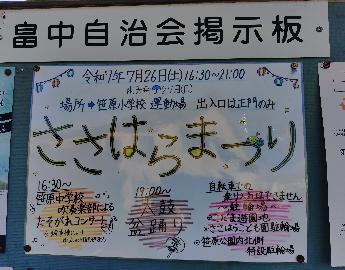 畠中自治会掲示板
令和7年7月26日(土)16:30~21:00
場所➡笹原小学校 運動場 出入口は正門のみ
ささはらまつり
16:30~
笹原中学校
吹奏楽部による
たそがれコンサート
19:00~
太鼓
盆踊り
自転車での
乗り入れはできません
駐輪場
こだま遊園地
ささはらこども園駐輪場
笹原公園内北側
特設駐輪場